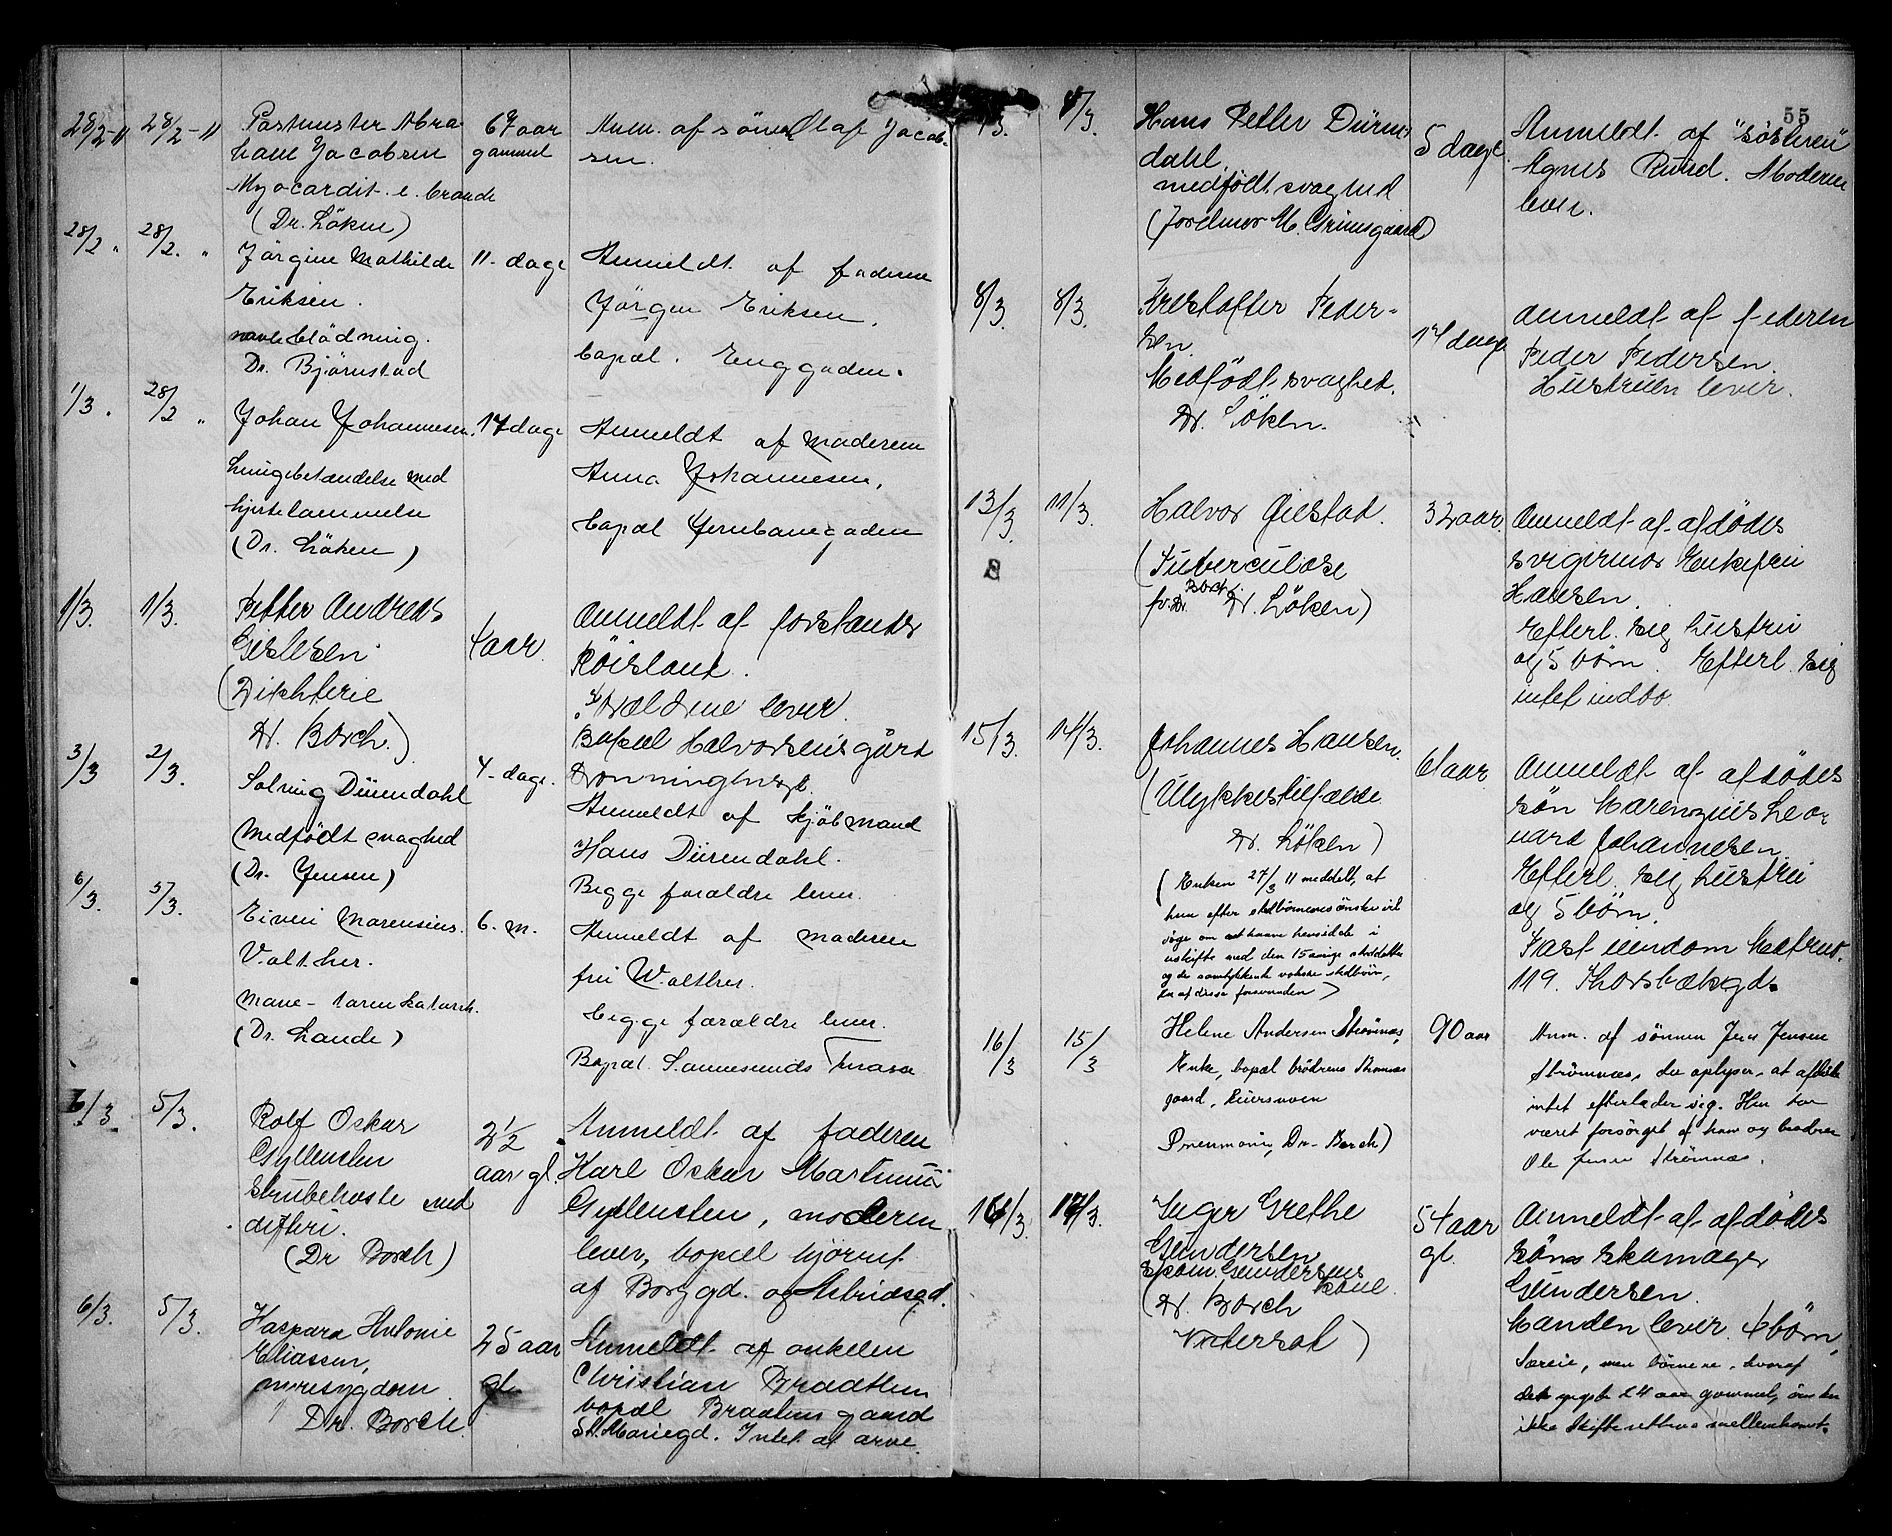 28/2-11 28/2-11 Postmester Abra 67 aar Anm. af sönen Olaf Jacob-
ham Jacobsen gammel sen.
Myocardit. e. bronde
(Dr. Löken)
28/2 " 28/2. " Jörgine Mathilde 11- dage Anmeldt af faderen
Eriksen. Jörgen Eriksen,
navleblödning. bopæl. Enggaden.
Dr. Björnstad
1/3. 28/2 " Johan Johannesen. 17 dage Anmeldt af moderen
lungebetændelse med Anna Johannesen,
hjertelammelse bopæl Jernbanegaden
(Dr. Löken)
1/3. 1/3. Petter Andreas 4 aar. Anmeldt af forstander
Gislesen Röisland.
(Difhterie Forældrene lever.
Dr. Borch.) Bopæl Halvorsens gård
Dronninghvgt.
3/3 2/3. Solveig Dürendahl 4- dage. Anmeldt af kjöbmand
Medfödt svaghed Hans Dürendahl.
(Dr. Jensen) Begge forældre lever.
6/3. 5/3. Eivin Marensius. 6. M. Anmeldt af moderen
Valther. fru Walther.
Mave- tarmkatarrh. begge forældre lever.
(Dr. Lande) Bopæl. Sannesunds Terasse
6/3. 5/3. Rolf Oskar 2 1/2 Anmeldt af faderen
Gyllensten aar gl. Karl Oskar Martinus
Strubehoste med Gyllensten, moderen
difteri. lever, bopæl hjörnet
(Dr Borch) af Borggd. og Astridsgd.
6/3. 5/3. Kaspara Antonie 25 aar Anmeldt af onkelen
Eliassen, gl. Christian Braathen
nyresygdom. bopæl Braatens gaard
Dr. Borch. St. Mariegd. Intet at arve.
55
/3. 8/3. Hans Petter Düren 5 dage Anmeldt af "sösteren"
dahl. Agnes Ruud. Moderen
medfödt svaghed lever.
(Jordmor M. Grimsgaard)
8/3 8/3. Kristoffer Peder- 14 dage Anmeldt af federen
sen. Peder Pedersen.
Medfödt svaghed. Hustruen lever.
Dr. Löken.
13/3. 11/3. Halvor Gjestad. 32 aar. Anmeldt af afdödes
(Tuberculose svigermor Enkefru
for Dr. Borch Dr. Löken) Hansen.
Efterl. sig hustru
og 5 börn. Efterl. sig
intet indbo
15/3. 14/3. Johannes Hansen. 61 aar Anmeldt af afdödes
(Ulykkestilfælde sön Marenzius Leo-
Dr. Löken) nard Johannesen
Efterl. sig hustru
og 5 börn.
Fast eiendom Matrno.
119. Thorsbækgd.
(Enken 27/3 11 meddelt, at
hun efter stedbörnenes önske vil
söge om at haave hensidde i
uskifte med den 15 aarige steddatter
og de samtykkende voksne stedbörn,
en af disse forsvunden)
16/3 15/3 Helene Andersen Strömnæs, 90 aar Anm. af sönnen Jens Jensen
Enke, bopæl brödrene Strömnæs Strömnæs, der oplyser, at afdöde
gaard, intet efterlader sig. Hun har
været forsörget af ham og broderen
Pneumoni, Dr. Borch) Ole Jensen Strömnæs.
16/3. 14/3. Inger Grethe 54 aar Anmeldt af afdödes
Gundersen gl. söns skomager
Skom. Gundersens kone. Gundersen.
(Dr. Borch Manden lever. 4 börn,
Vattersot) Særeie, men börnene, hvoraf
det yngste 24 aar gammel, önsker
ikke skifterettens mellemkomst.